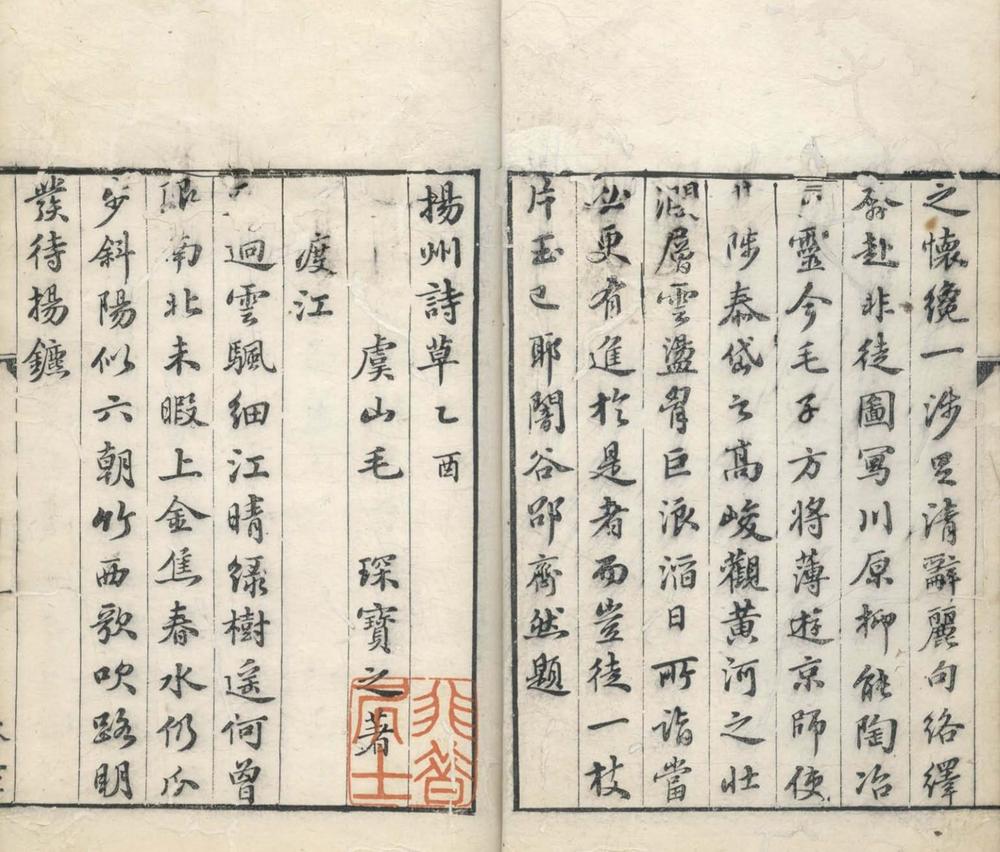 之懷纔一涉思清辭麗句絡繹
奔赴非徒圖寫川原抑能陶冶
靈今毛子方將薄遊京師使
陟泰岱之高峻觀黃河之壯
濶層雲盪胷巨浪滔日所詣當
必更有進於是者而豈徒一枝
片玉已耶闇谷邵齊然題
揚州詩草乙酉
虞山毛 琛寶之著
渡江
迥雲颿細江晴緑樹遥何曾
限南北未暇上金焦春水仍瓜
步斜陽似六朝竹西歌吹路明
發待揚鑣
居士